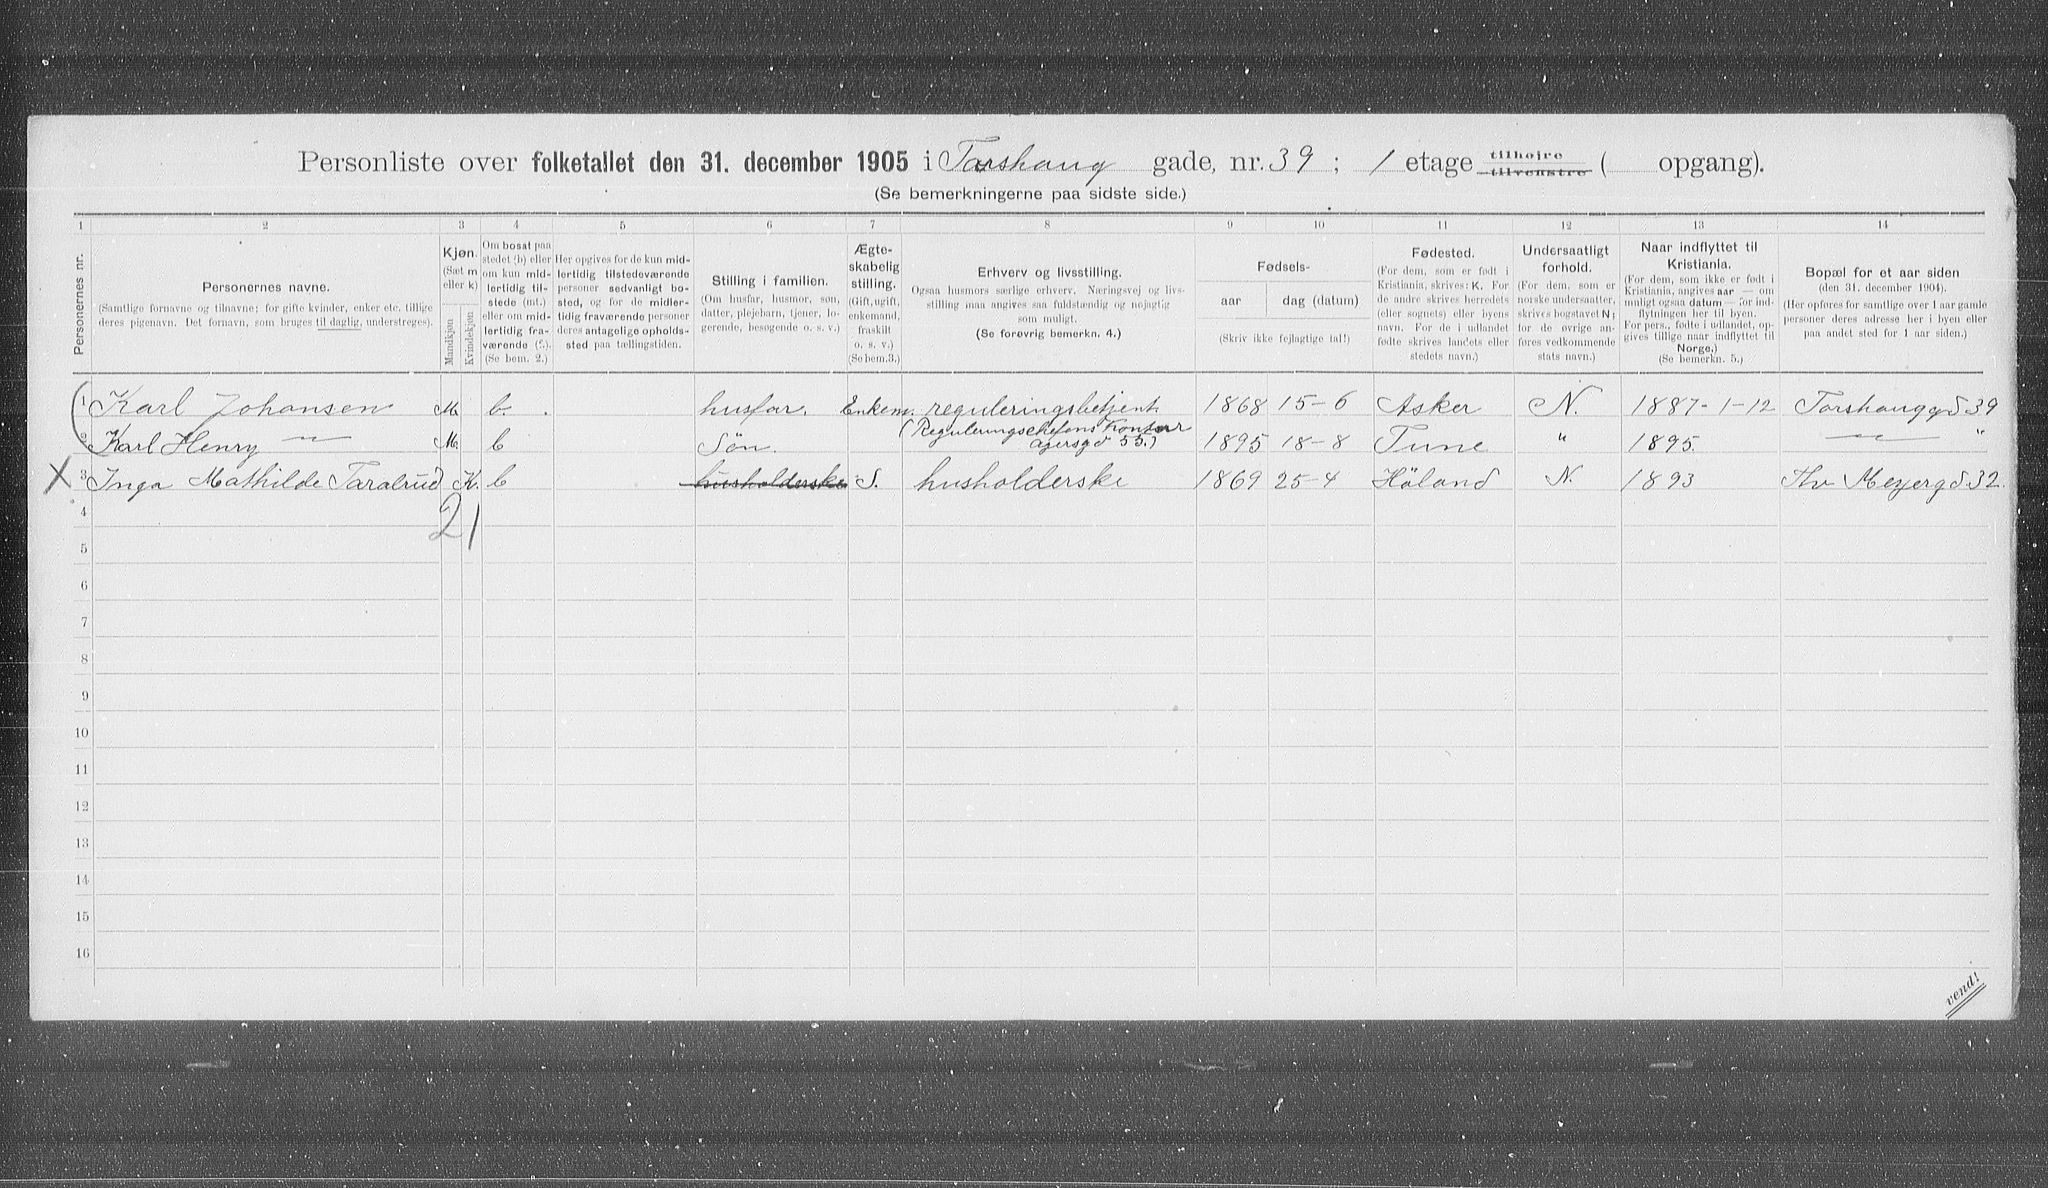 Personliste over folketallet den 31. december 1905 i Torshaug gade, nr. 39 ; 1 etage tilhøjre tilvenstre ( opgang).
(Se bemerkningerne paa sidste side.)
1 2 3 4 5 6 7 8 9 10 11 12 13 14
Personernes nr.
Personernes navne.
(Samtlige fornavne og tilnavne; for gifte kvinder, enker etc. tillige
deres pigenavn. Det fornavn, som bruges til daglig, understreges).
Kjøn.
(Sæt m
eller k)
Mandkjøn
Kvindekjøn
Om bosat paa
stedet (b) eller
om kun mid-
lertidig til-
stede (mt.)
eller om mid-
lertidig fra-
værende (f.).
(Se bem. 2.)
Her opgives for de kun mid-
lertidig tilstedeværende
personer sedvanligt bo-
sted, og for de midler-
tidig fraværende personer
deres antagelige opholds-
sted paa tællingstiden.
Stilling i familien.
(Om husfar, husmor, søn,
datter, plejebarn, tjener, lo-
gerende, besøgende o. s. v.)
Ægte-
skabelig
stilling.
(Gift, ugift,
enkemand,
fraskilt
o. s. v.)
(Se bem. 3.)
Erhverv og livsstilling.
Ogsaa husmors særlige erhverv. Næringsvej og livs-
stilling maa angives saa fuldstændig og nøjagtig
som muligt.
(Se forøvrig bemerkn. 4.)
Fødsels-
aar dag (datum)
(Skriv ikke fejlagtige tal!)
Fødested.
(For dem, som er født i
Kristiania, skrives: K. For
de andre skrives herredets
(eller sognets) eller byens
navn. For de i udlandet
fødte skrives landets eller
stedets navn.)
Undersaatligt
forhold.
(For dem, som er
norske undersaatter,
skrives bogstavet N;
for de øvrige an-
føres vedkommende
stats navn.)
Naar indflyttet til
Kristiania.
(For dem, som ikke er født i
Kristiania, angives aar — om
muligt ogsaa datum — for ind-
flytningen her til byen.
For pers., fødte i udlandet, op-
gives tillige naar indflyttet til
Norge.)
(Se bemerkn. 5.)
Bopæl for et aar siden
(den 31. december 1904).
(Her opføres for samtlige over 1 aar gamle
personer deres adresse her i byen eller
paa andet sted for 1 aar siden.)
1 Karl Johansen M b. husfar. Enkem. reguleringsbetjent 1868 15-6 Asker N. 1887-1-12 Torshauggd 39
(Reguleringschefens Kontor
Agersgd 55.)
2 Karl Henry —"— M. b Søn. 1895 18-8 Tune " 1895. —"— "
X 3 Inga Mathilde Taralrud K. b husholderske S. husholderske 1869 25-4 Höland N. 1893 Thv Meyergd. 32.
4 2 1
5
6
7
8
9
10
11
12
13
14
15
16
vend!